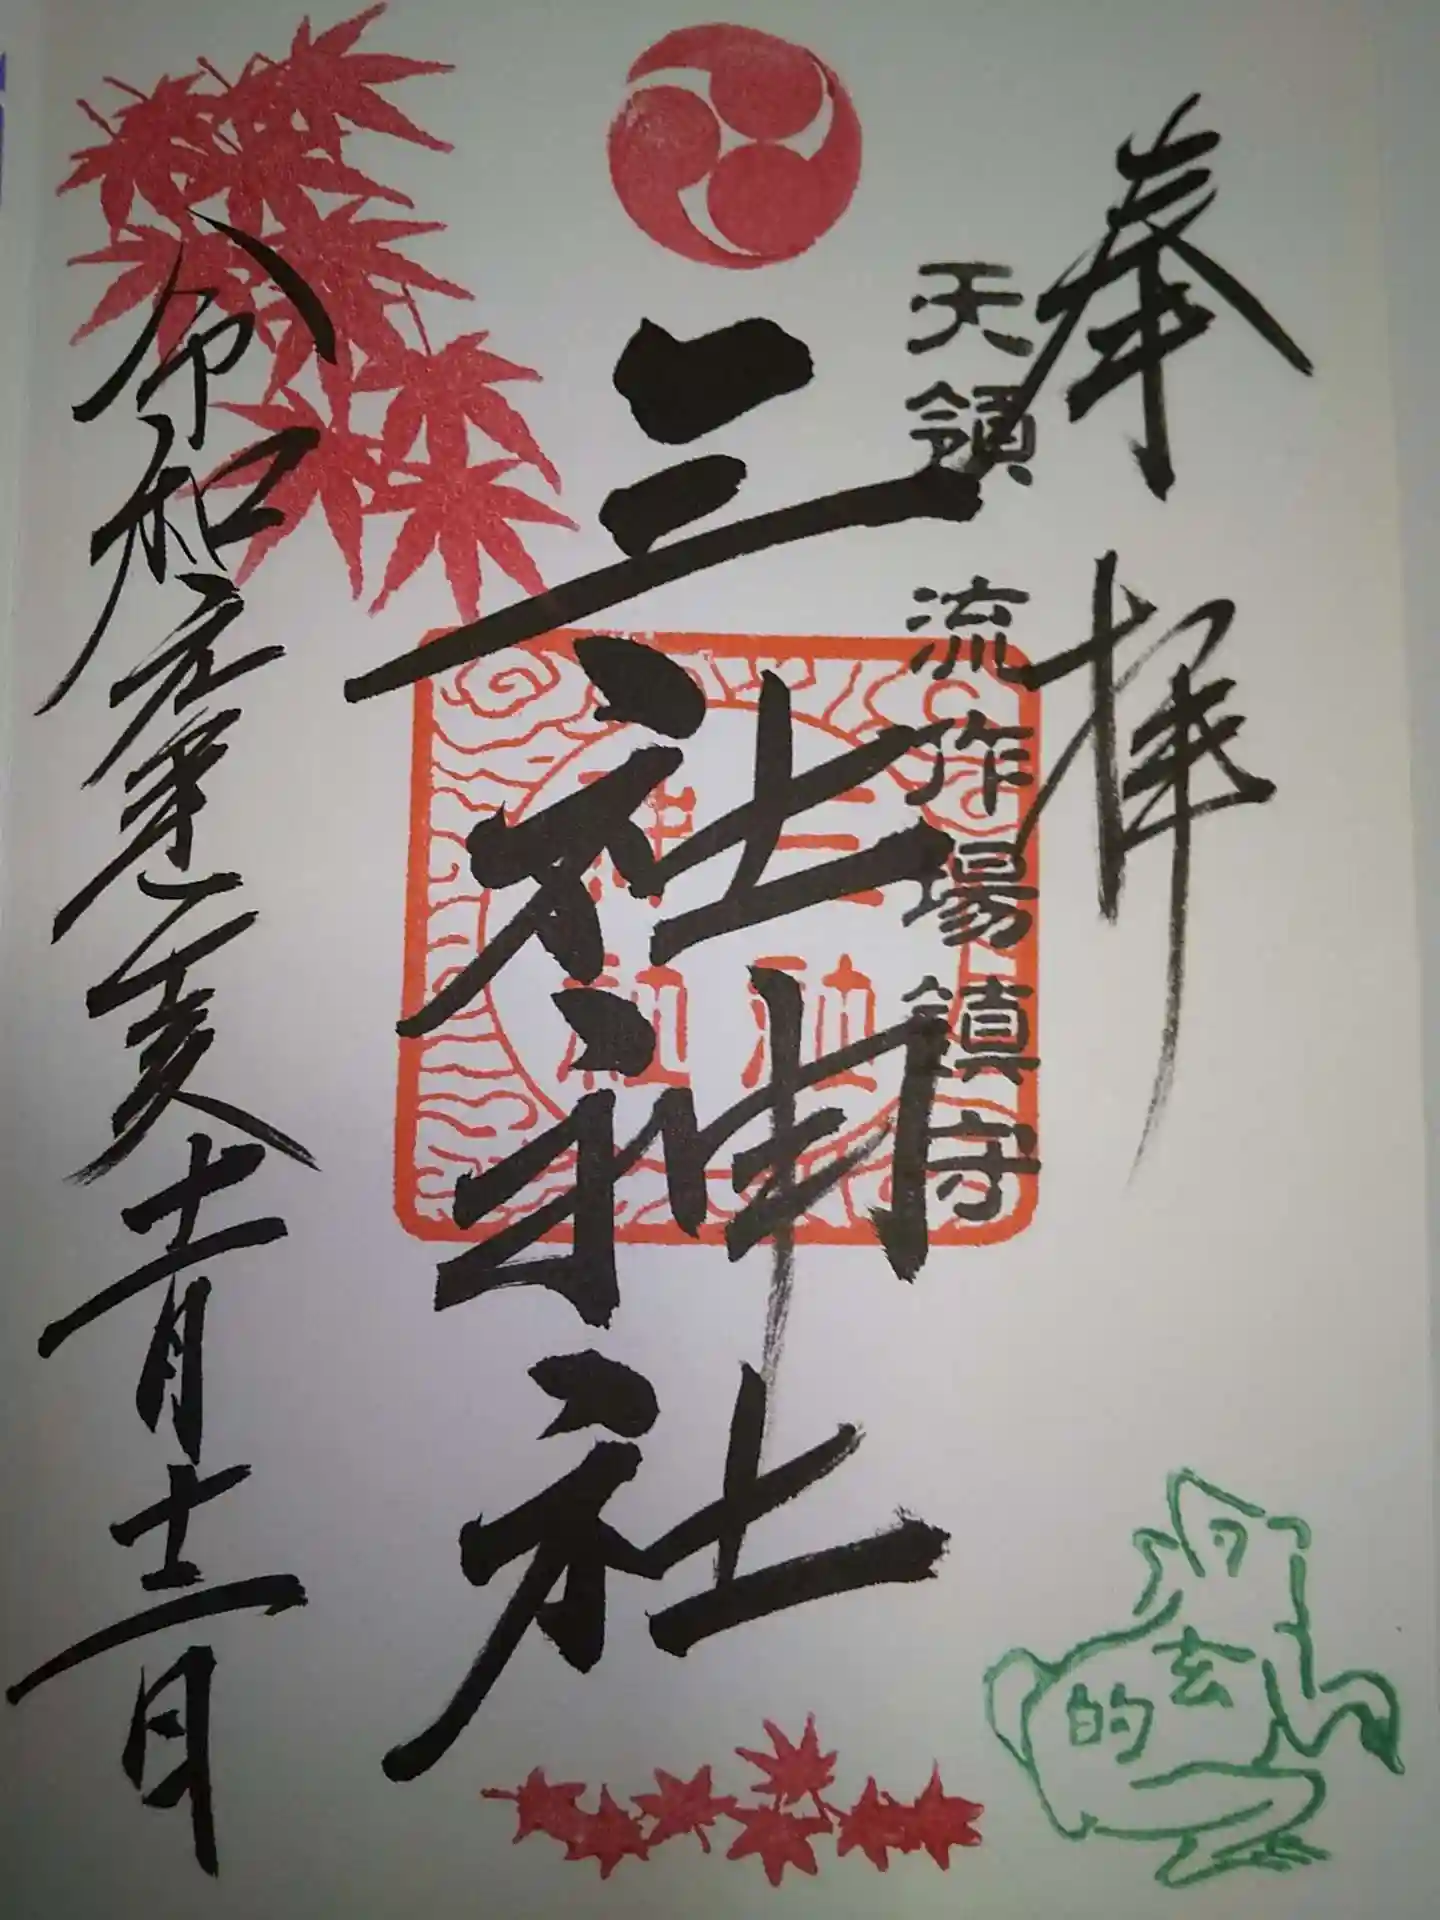 奉拝
天領 流作場鎮守
三社神社
令和元年己亥十一月十二日
玄的